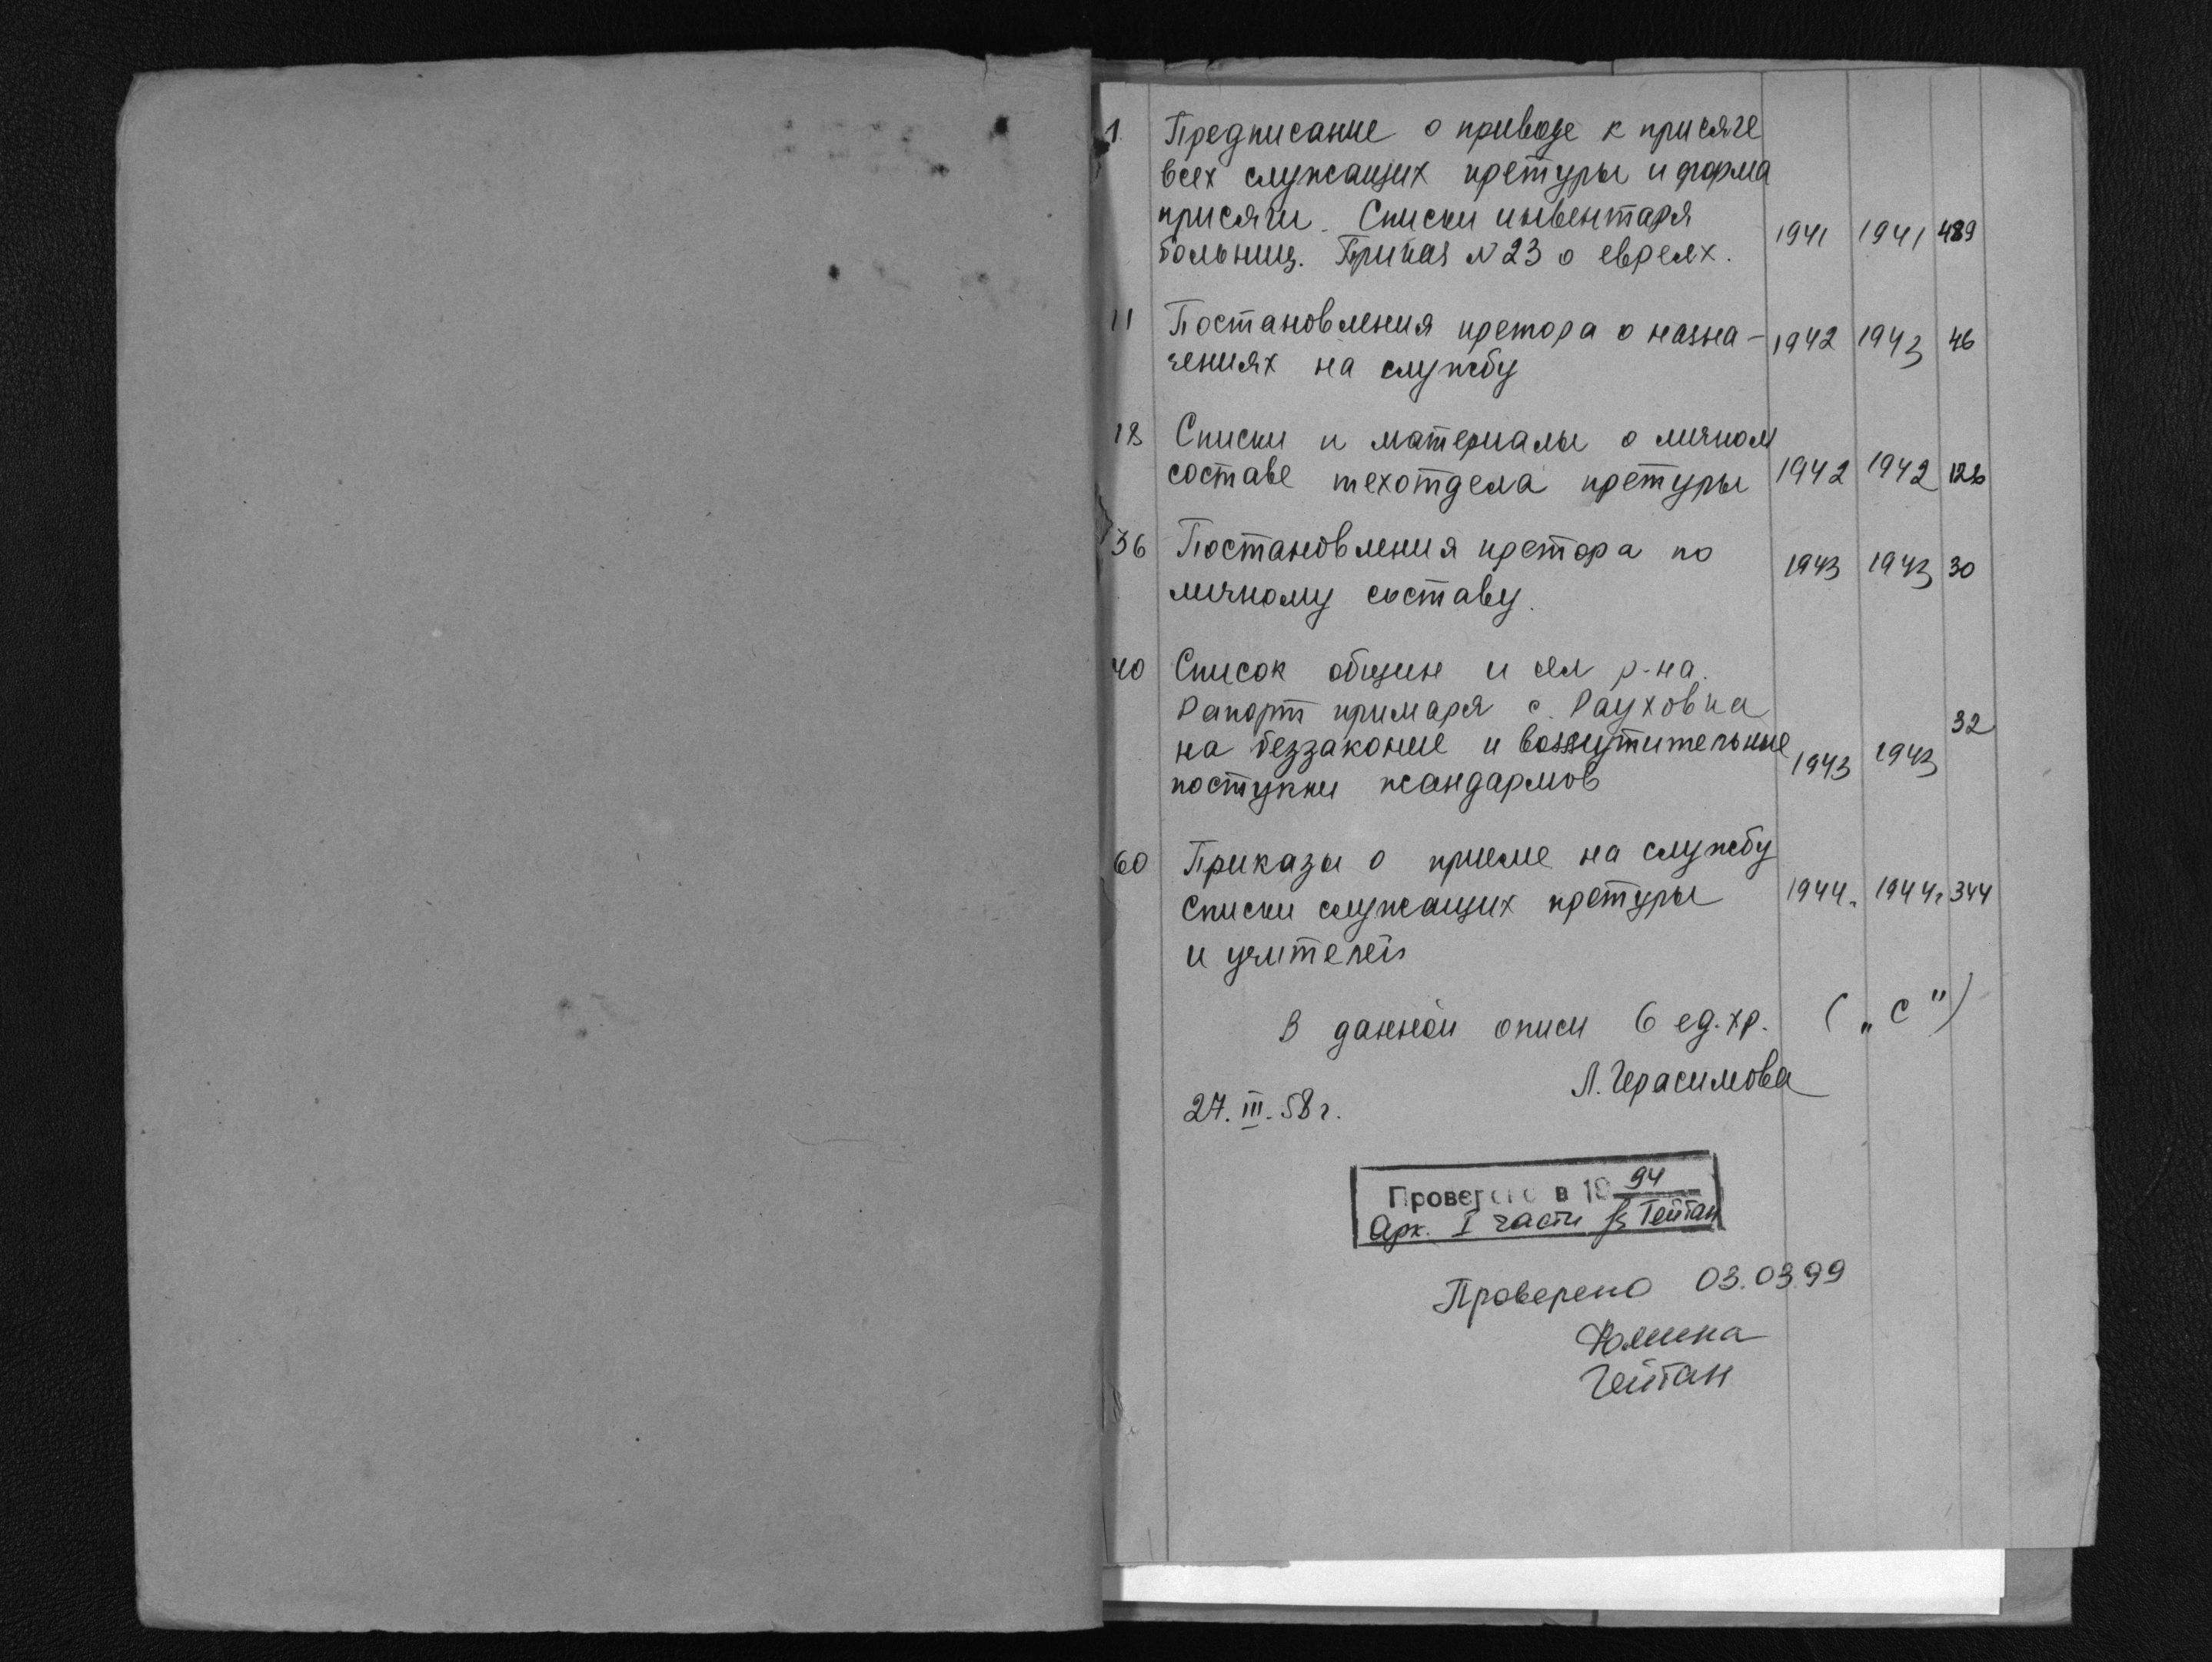 1 Предписание о приводе к присяге
всех служащих претуры и форма
присяги. Списки инвентаря
больниц. Приказ №23 о евреях. 1941 1941 489
11 Постановления претора о назна- 1942 1943 46
чениях на службу
18 Списки и материалы о личном
составе техотдела претуры 1942 1942 126
36 Постановления претора по 1943 1943 30
личному составу.
40 Список общин и сел р-на.
Рапорт примаря с. Рауховка 32
на беззаконие и возмутительные 1943 1943
поступки жандармов
60 Приказы о приеме на службу
Списки служащих претуры 1944г. 1944г. 344
и учителей
В данной описи 6 ед. хр. („С")
Л. Герасимова
27.III.58г.
Проверено в 1994
Арх. I части Гейтан
Проверено 03.03.99
Гейтан